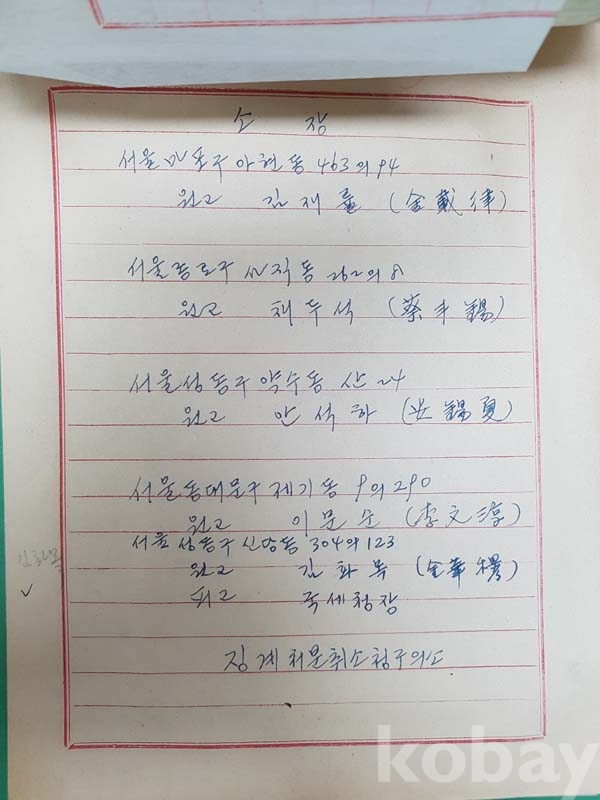 소 장
서울 마포구 아현동 463의 94
원고 김재률 (金戴律)
서울 종로구 사직동 262의 8
원고 채두석 (蔡斗錫)
서울 성동구 약수동 산 24
원고 안석하 (安錫夏)
서울 동대문구 제기동 9의 290
원고 이문순 (李文淳)
서울 성동구 신당동 304의 123
원고 김화목 (金華穆)
피고 국세청장
징계처분취소청구의소
kobay